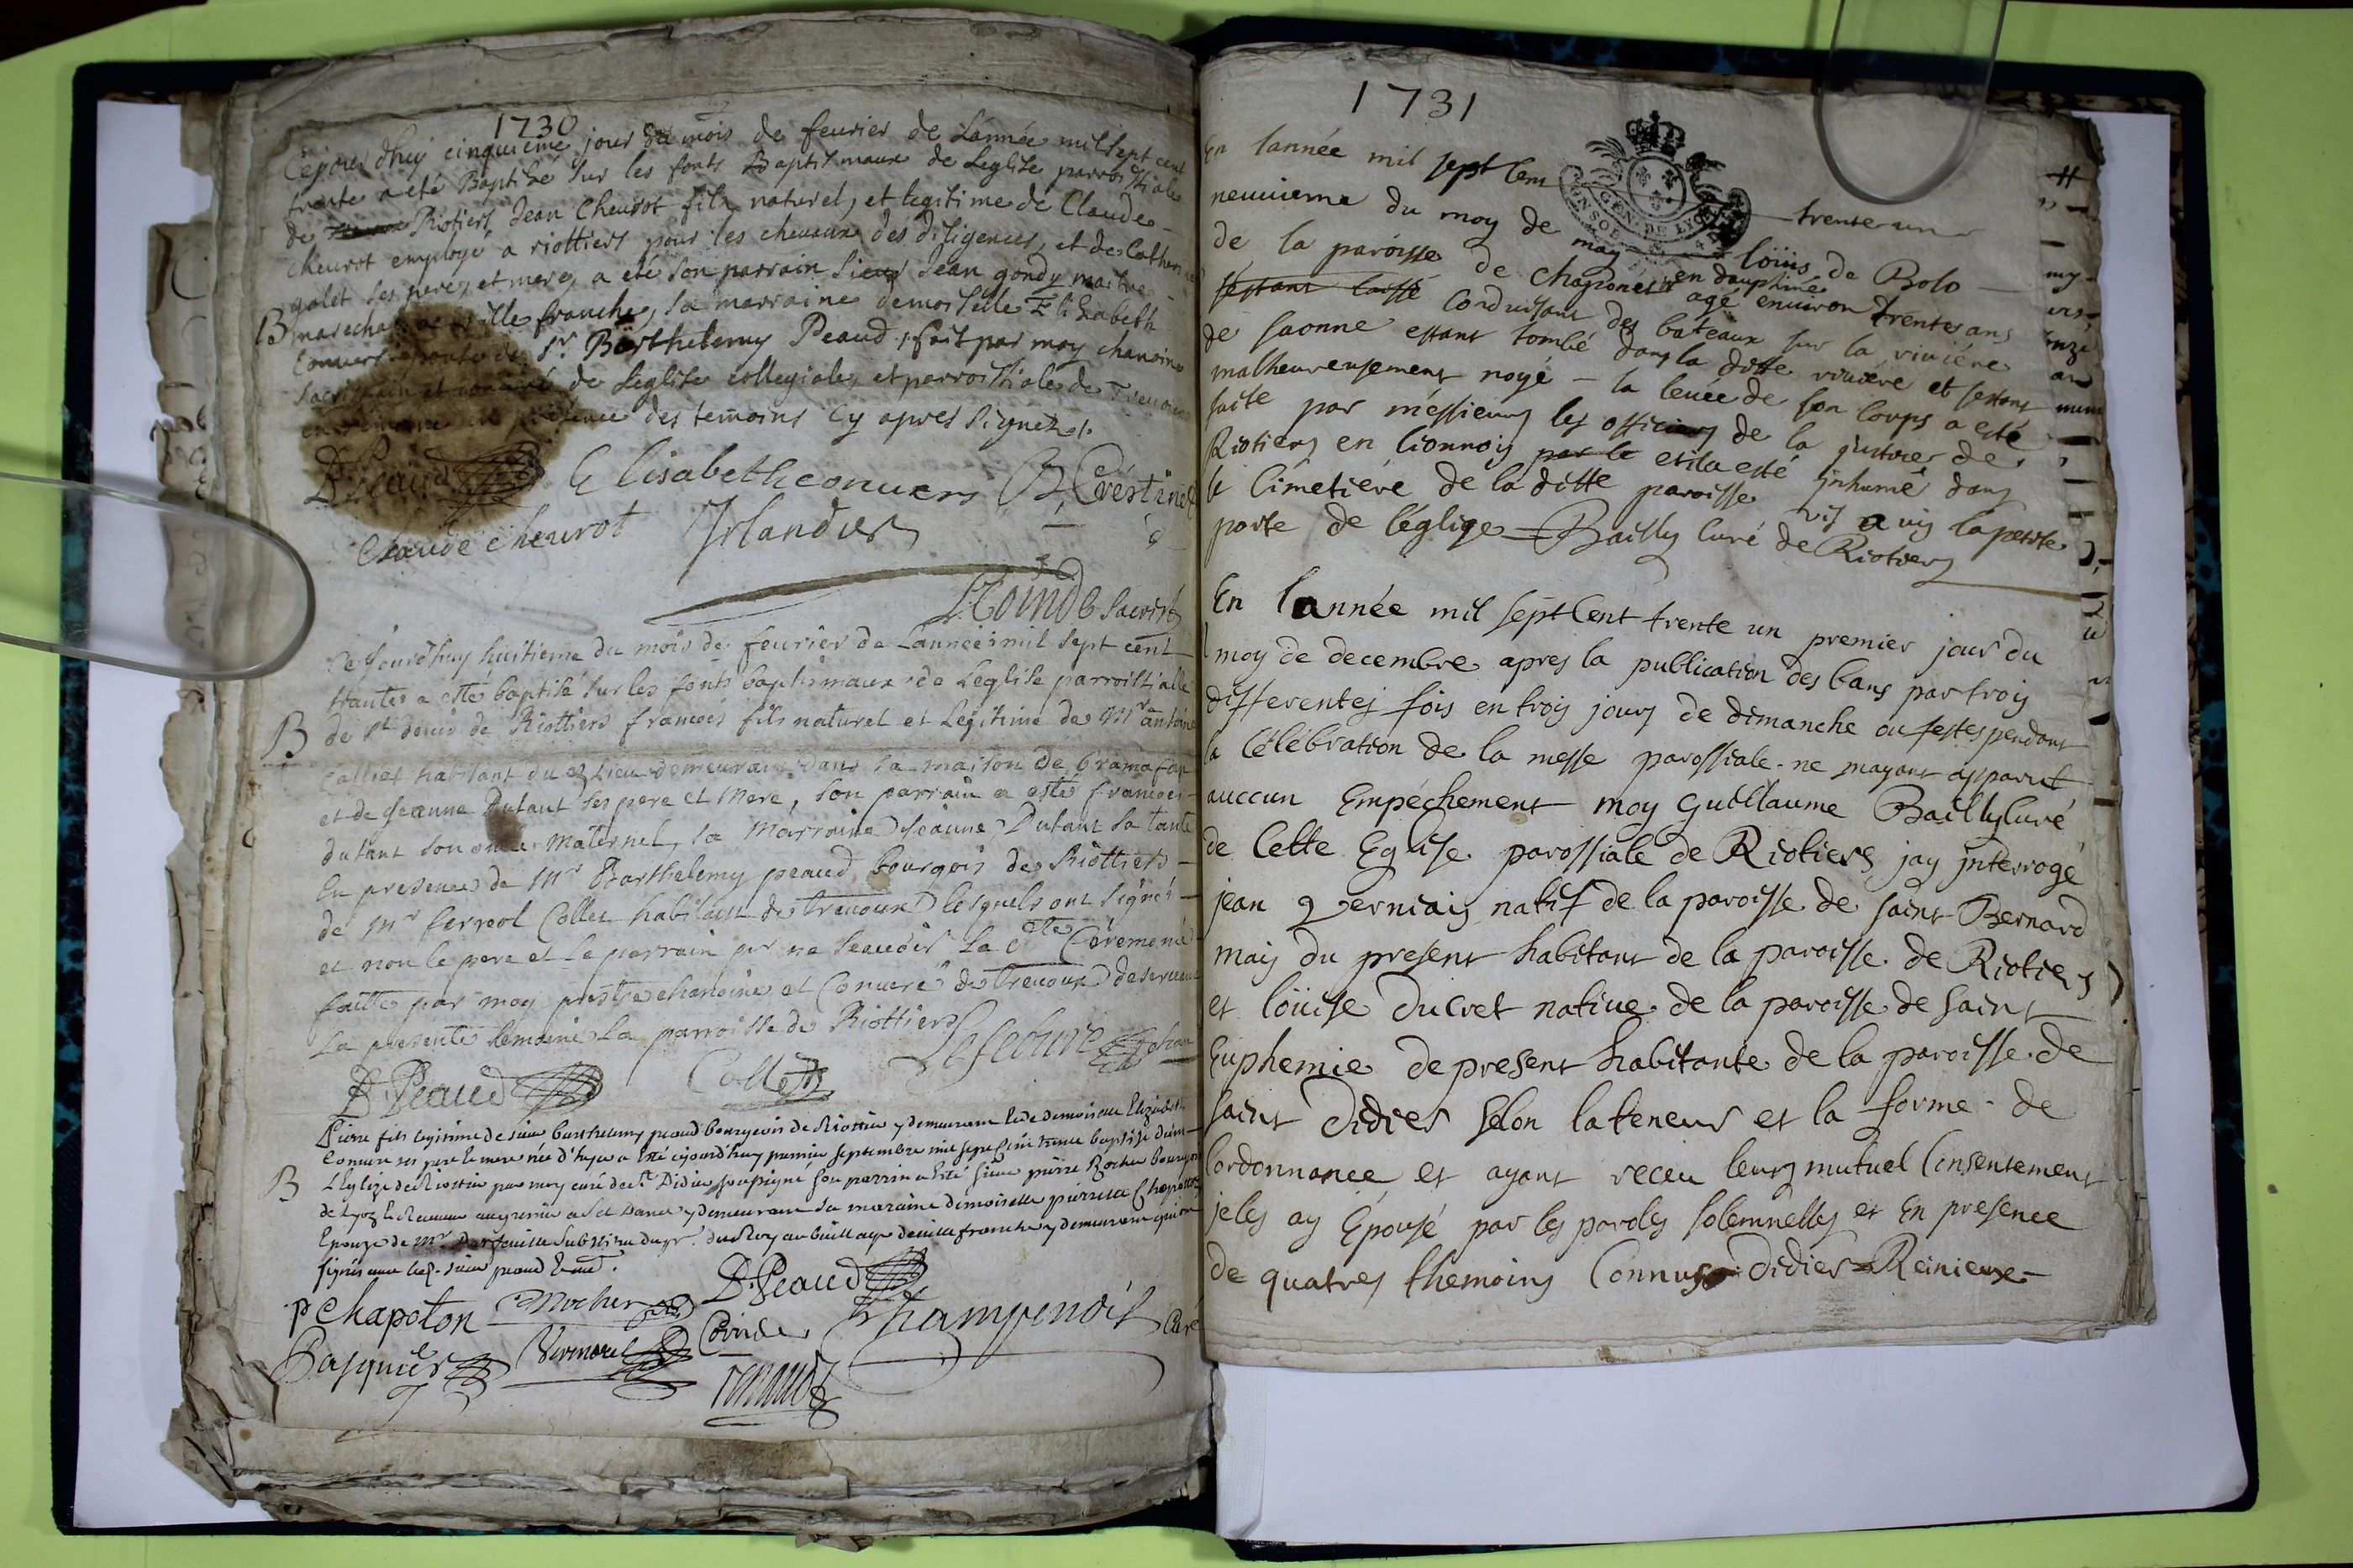 1730
Cejourdhuy cinquieme jour du mois de feurier de Lannée mil sept cent
trente a eté Baptisé sur les fonts Baptismaux de Leglise parroissiale
de Riotiers Jean Cheurot fils naturel, et legitime de Claude
Cheurot employé a riottiers pour les cheuaux des diligences, et de Catherine
galet ses pere, et mere, a eté son parrain sieur Jean gondy maitre
B marechal a ville franche, sa marraine demoiselle Elizabeth
Conuers epouse de Sr Barthelemy Peaud, fait par moy chanoine
sacristain et de Leglise collegiale, et parroissiale de Treuoux
en presence des temoins Cy apres signez
B. Peaud Elisabeth conuers B. Crestinet
Claude cheurot Irlandes
Coinde sacrist
Cejourdhuy huitieme du mois de feurier de Lannée mil sept cent
trante a esté baptisé sur les fonts baptismaux de Leglise parroissialle
B de St denis de Riottiers francois fils naturel et Legitime de Mr antoine
Calliet habitant du dt Lieu demeurant dans la maison de bramafan
et de Jeanne Dutant ses pere et Mere, son parrain a esté francois
dutant son oncle Maternel, sa Marraine Jeanne Dutant sa tante
En presence de Mr Barthelemy peaud bourgois de Riottiers
de Mr ferreol Collet habitant de treuoux lesquels ont signés
et non le pere et le parrain pr ne scauoir La dte Ceremonie
faitte par moy prestre chanoine et Concuré de treuoux deseruant
La presente semaine La parroisse de Riottiers
B. Peaud Collet Lefebure chan
Pierre fils legitime de sieur barthelemy peaud bourgeois de Riottier y demeurant et de demoiselle Elizabeth
Conuers ses pere et mere né d'hyer a esté cejourdhuy premier septembre mil sept cent trente baptisé dans
B L'Eglize de Riottier par moy curé de St Didier soussigné son parrin a esté sieur pierre Rocher bourgeois
de Lyon y demeurant sa maraine demoiselle pierrette Chapoton
Epouze de Mr substitut du pr. du Roy au baillage de uille franche y demeurant qui ont
signés auec led. sieur peaud
P Chapoton Rocher B. Peaud
Champenois Curé
Pasquier Vermorel Coinde
renaud
1731
En lannée mil sept cent trente un
neuuieme du moy de may loüis de Bolo
de la paroisse de chaponest en dauphiné
sestant laissé agé enuiron trentes ans
Conduisant des bateaux sur la riuiére
de saonne estant tombé dans la ditte riuiére et sestant
malheureusement noyé la leuée de son corps a esté
faite par messieurs les officiers de la justice de
Riotiers en lionnois par le et il a esté jnhumé dans
le Cimetiére de la ditte paroisse vis a vis la petite
porte de l'église Bailly Curé de Riotiers
En lannée mil sept Cent trente un premier jour du
moy de decembre apres la publication des bans par trois
differentes fois en trois jours de dimanche ou festes pendant
la Célébration de la messe parossiale ne mayant apparut
auccun Empéchement moy Guillaume Bailly curé
de Cette Eglise parossiale de Riotiers jay jnterrogé
jean Verniais natif de la paroisse de saint Bernard
mais du present habitant de la paroisse de Riotiers
et loüise Ducret natiue de la paroisse de saint
Euphemie de present habitante de la paroisse de
saint Didier selon la teneur et la forme de
lordonnance et ayant receu leurs mutuel Consentement
je les ay Épousé par les paroles solemnelles et En presence
de quatres themoins Connus Didier Reinieux